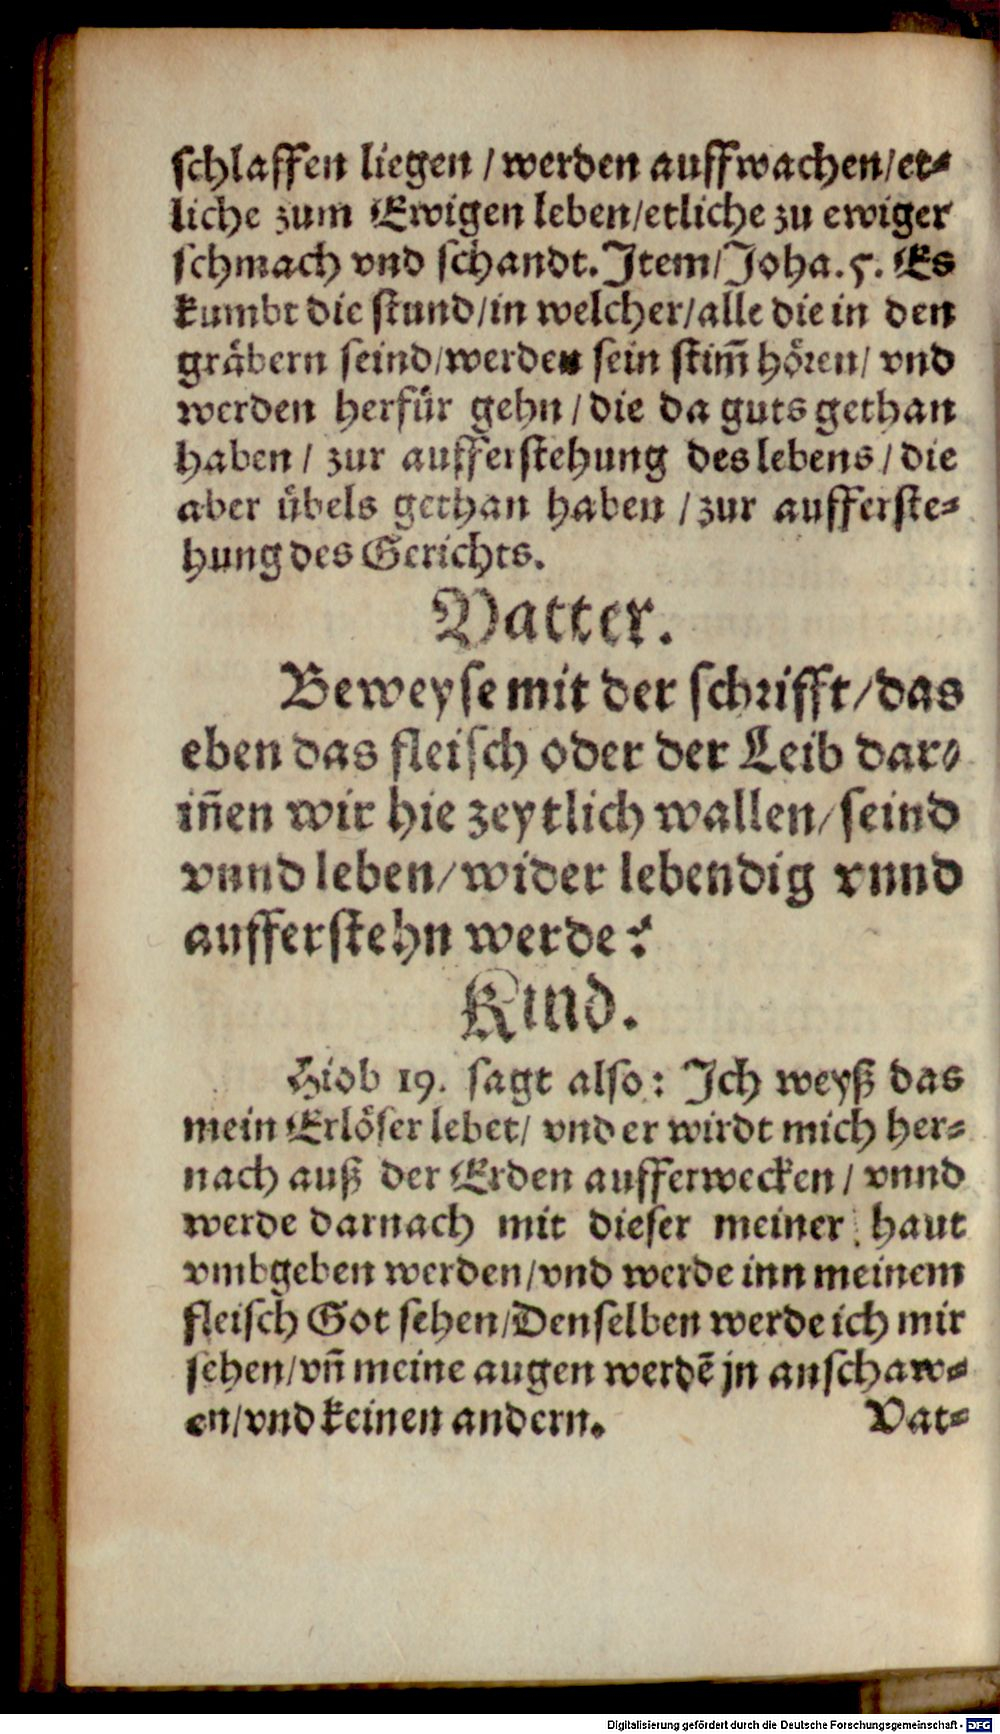 schlaffen liegen / werden auffwachen/et-
liche zum Ewigen leben/etliche zu ewiger
schmach vnd schandt. Item/Joha.5. Es
kumbt die stund/in welcher/alle die in den
gräbern seind/werden sein stim̃ hören/ vnd
werden herfür gehn / die da guts gethan
haben / zur aufferstehung des lebens / die
aber übels gethan haben / zur aufferste-
hung des Gerichts.
Vatter.
Beweyse mit der schrifft/das
eben das fleisch oder der Leib dar-
iñen wir hie zeytlich wallen/seind
vnnd leben/wider lebendig vnnd
aufferstehn werde?
Kind.
Hiob 19. sagt also: Ich weyß das
mein Erlöser lebet/ vnd er wirdt mich her-
nach auß der Erden aufferwecken / vnnd
werde darnach mit dieser meiner haut
vmbgeben werden/vnd werde inn meinem
fleisch Got sehen/Denselben werde ich mir
sehen/vñ meine augen werdẽ jn anschaw-
en/vnd keinen andern.
Vat-
Digitalisierung gefördert durch die Deutsche Forschungsgemeinschaft - DFG